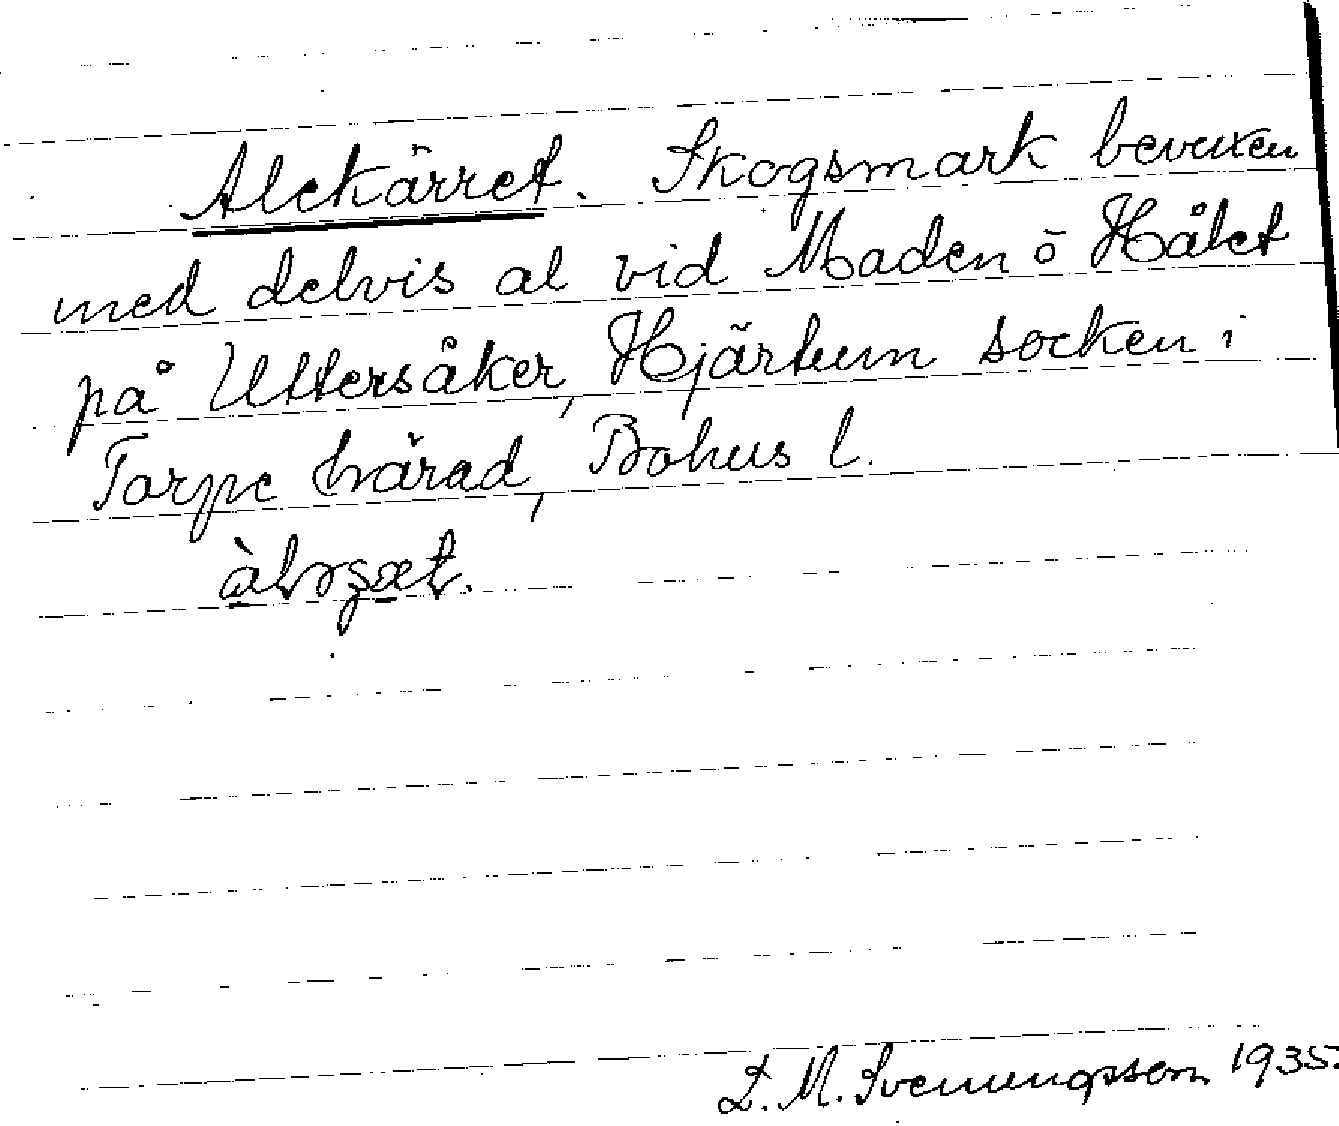 Alekärret. Skogsmark bevuxen
med delvis al vid Maden ō Hålet
på Uttersåker, Hjärtum socken i
Torpe härad, Bohus l.
L. M. Svenungsson 1935.